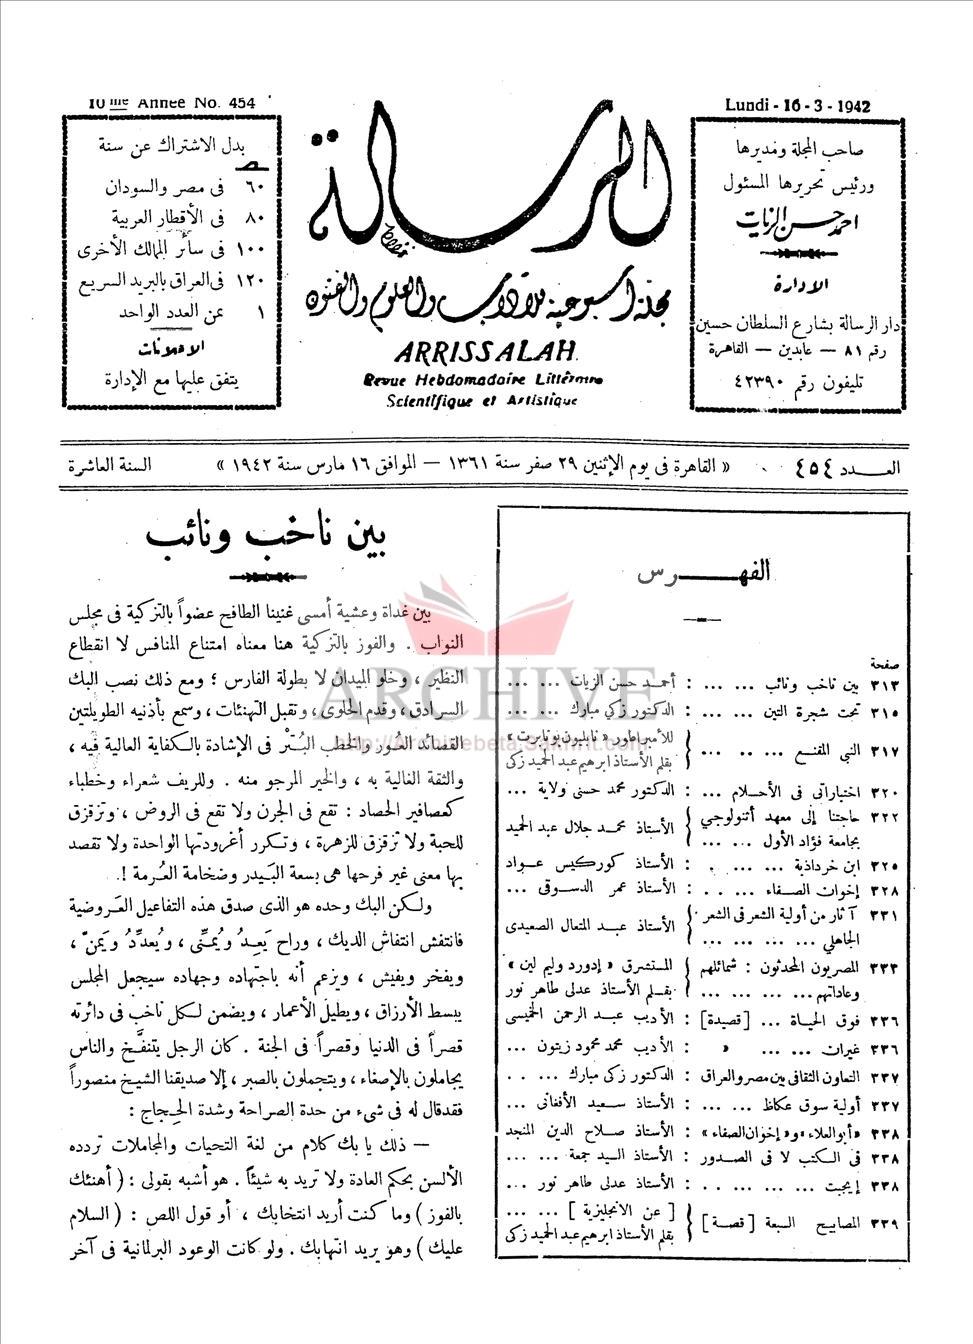 10 me Année No. 454
Lundi - 16 - 3 - 1942
بدل الاشتراك عن سنة
٦٠ فى مصر والسودان
٨٠ فى الأقطار العربية
١٠٠ فى سائر الممالك الأخرى
١٢٠ فى العراق بالبريد السريع
١ ثمن العدد الواحد
الاعلانات
يتفق عليها مع الإدارة
الرسالة
مجلة أسبوعية للآداب والعلوم والفنون
ARRISSALAH
Revue Hebdomadaire Littéraire
Scientifique et Artistique
صاحب المجلة ومديرها
ورئيس تحريرها المسئول
احمد حسن الزيات
الادارة
دار الرسالة بشارع السلطان حسين
رقم ٨١ — عابدين — القاهرة
تليفون رقم ٤٢٣٩٠
العـــدد ٤٥٤ « القاهرة فى يوم الإثنين ٢٩ صفر سنة ١٣٦١ — الموافق ١٦ مارس سنة ١٩٤٢ » السنة العاشرة
الفهـــــرس
صفحة
٣١٣ بين ناخب ونائب ... ... : أحمد حسن الزيات ... ...
٣١٥ تحت شجرة التين ... ... : الدكتور زكى مبارك ... ...
٣١٧ النبى المقنع ... .. .. { للأمبراطور « نابليون بونابرت »
بقلم الأستاذ ابرهيم عبد الحميد زكى
٣٢٠ اختياراتى فى الأحلام ... : الدكتور محمد حسنى ولاية ...
٣٢٢ حاجتنا إلى معهد أتنولوجي
بجامعة فؤاد الأول ... ... } الأستاذ محمد جلال عبد الحميد
٣٢٥ ابن خرداذبة ... ... . : الأستاذ كوركيس عواد
٣٢٨ إخوان الصفاء ... . . : الأستاذ عمر الدسوقى ...
٣٣١ آثار من أولية الشعر فى الشعر
الجاهلي ... ... ... ... } الأستاذ عبد المتعال الصعيدى
٣٣٣ المصريون المحدثون : شمائلهم
وعاداتهم ... ... ... ... { المستشرق « إدورد وليم لين »
بقلم الأستاذ عدلى طاهر نور
٣٣٦ فوق الحياة ... [ قصيدة ] : الأديب عبد الرحمن الخميسى
٣٣٦ غيرات ... ... « : الأديب محمد محمود زيتون ...
٣٣٧ التعاون الثقافى بين مصر والعراق : الدكتور زكى مبارك ... . .
٣٣٧ أولية سوق عكاظ ... ... : الأستاذ سعيد الأفغانى . ...
٣٣٨ « أبو العلاء » و « إخوان الصفاء » : الأستاذ صلاح الدين المنجد
٣٣٨ فى الكتب لا فى الصدور : الأستاذ السيد جمعة ... ...
٣٣٨ إيجبت ... ... ... . . : الأستاذ عدلى طاهر نور ...
٣٣٩ المصابيح السبعة [ قصة ] { [ عن الانجليزية ] ... ...
بقلم الأستاذ ابرهيم عبد الحميد زكى
بين ناخب ونائب
بين غداة وعشية أمسى غنينا الطافح عضواً بالتزكية فى مجلس
النواب . والفوز بالتزكية هنا معناه امتناع المنافس لا انقطاع
النظير ، وخلو الميدان لا بطولة الفارس ؛ ومع ذلك نصب البك
السرادق ، وقدم الحلوى ، وتقبل التهنئات ، وسمع بأذنيه الطويلتين
القصائد العُور والخطب البُتْر فى الإشادة بالكفاية العالية فيه ،
والثقة الغالية به ، والخير المرجو منه . وللريف شعراء وخطباء
كعصافير الحصاد : تقع فى الجرن ولا تقع فى الروض ، وتزقزق
للحبة ولا تزقزق للزهرة ، وتكرر أغرودتها الواحدة ولا تقصد
بها معنى غير فرحها هى بسعة البَيدر وضخامة العُرمة !
ولكن البك وحده هو الذى صدق هذه التفاعيل العَروضية
فانتفش انتفاش الديك ، وراح يَعِدُ ويُمنِّى ، ويُعدِّدُ ويَمنّ ،
ويفخر ويفيش ، ويزعم أنه باجتهاده وجهاده سيجعل المجلس
يبسط الأرزاق ، ويطيل الأعمار ، ويضمن لكل ناخب فى دائرته
قصراً فى الدنيا وقصراً فى الجنة . كان الرجل يتنفّخ والناس
يجاملون بالإصغاء ، ويتجملون بالصبر ، إلا صديقنا الشيخ منصوراً
فقد قال له فى شىء من حدة الصراحة وشدة الحِجاج :
— ذلك يا بك كلام من لغة التحيات والمجاملات تردده
الألسن بحكم العادة ولا تريد به شيئاً . هو أشبه بقولى : ( أهنئك
بالفوز ) وما كنت أريد انتخابك ، أو قول اللص : ( السلام
عليك ) وهو يريد انتهابك . ولو كانت الوعود البرلمانية فى آخر
ARCHIVE
http://Archivebeta.Sakhrit.com